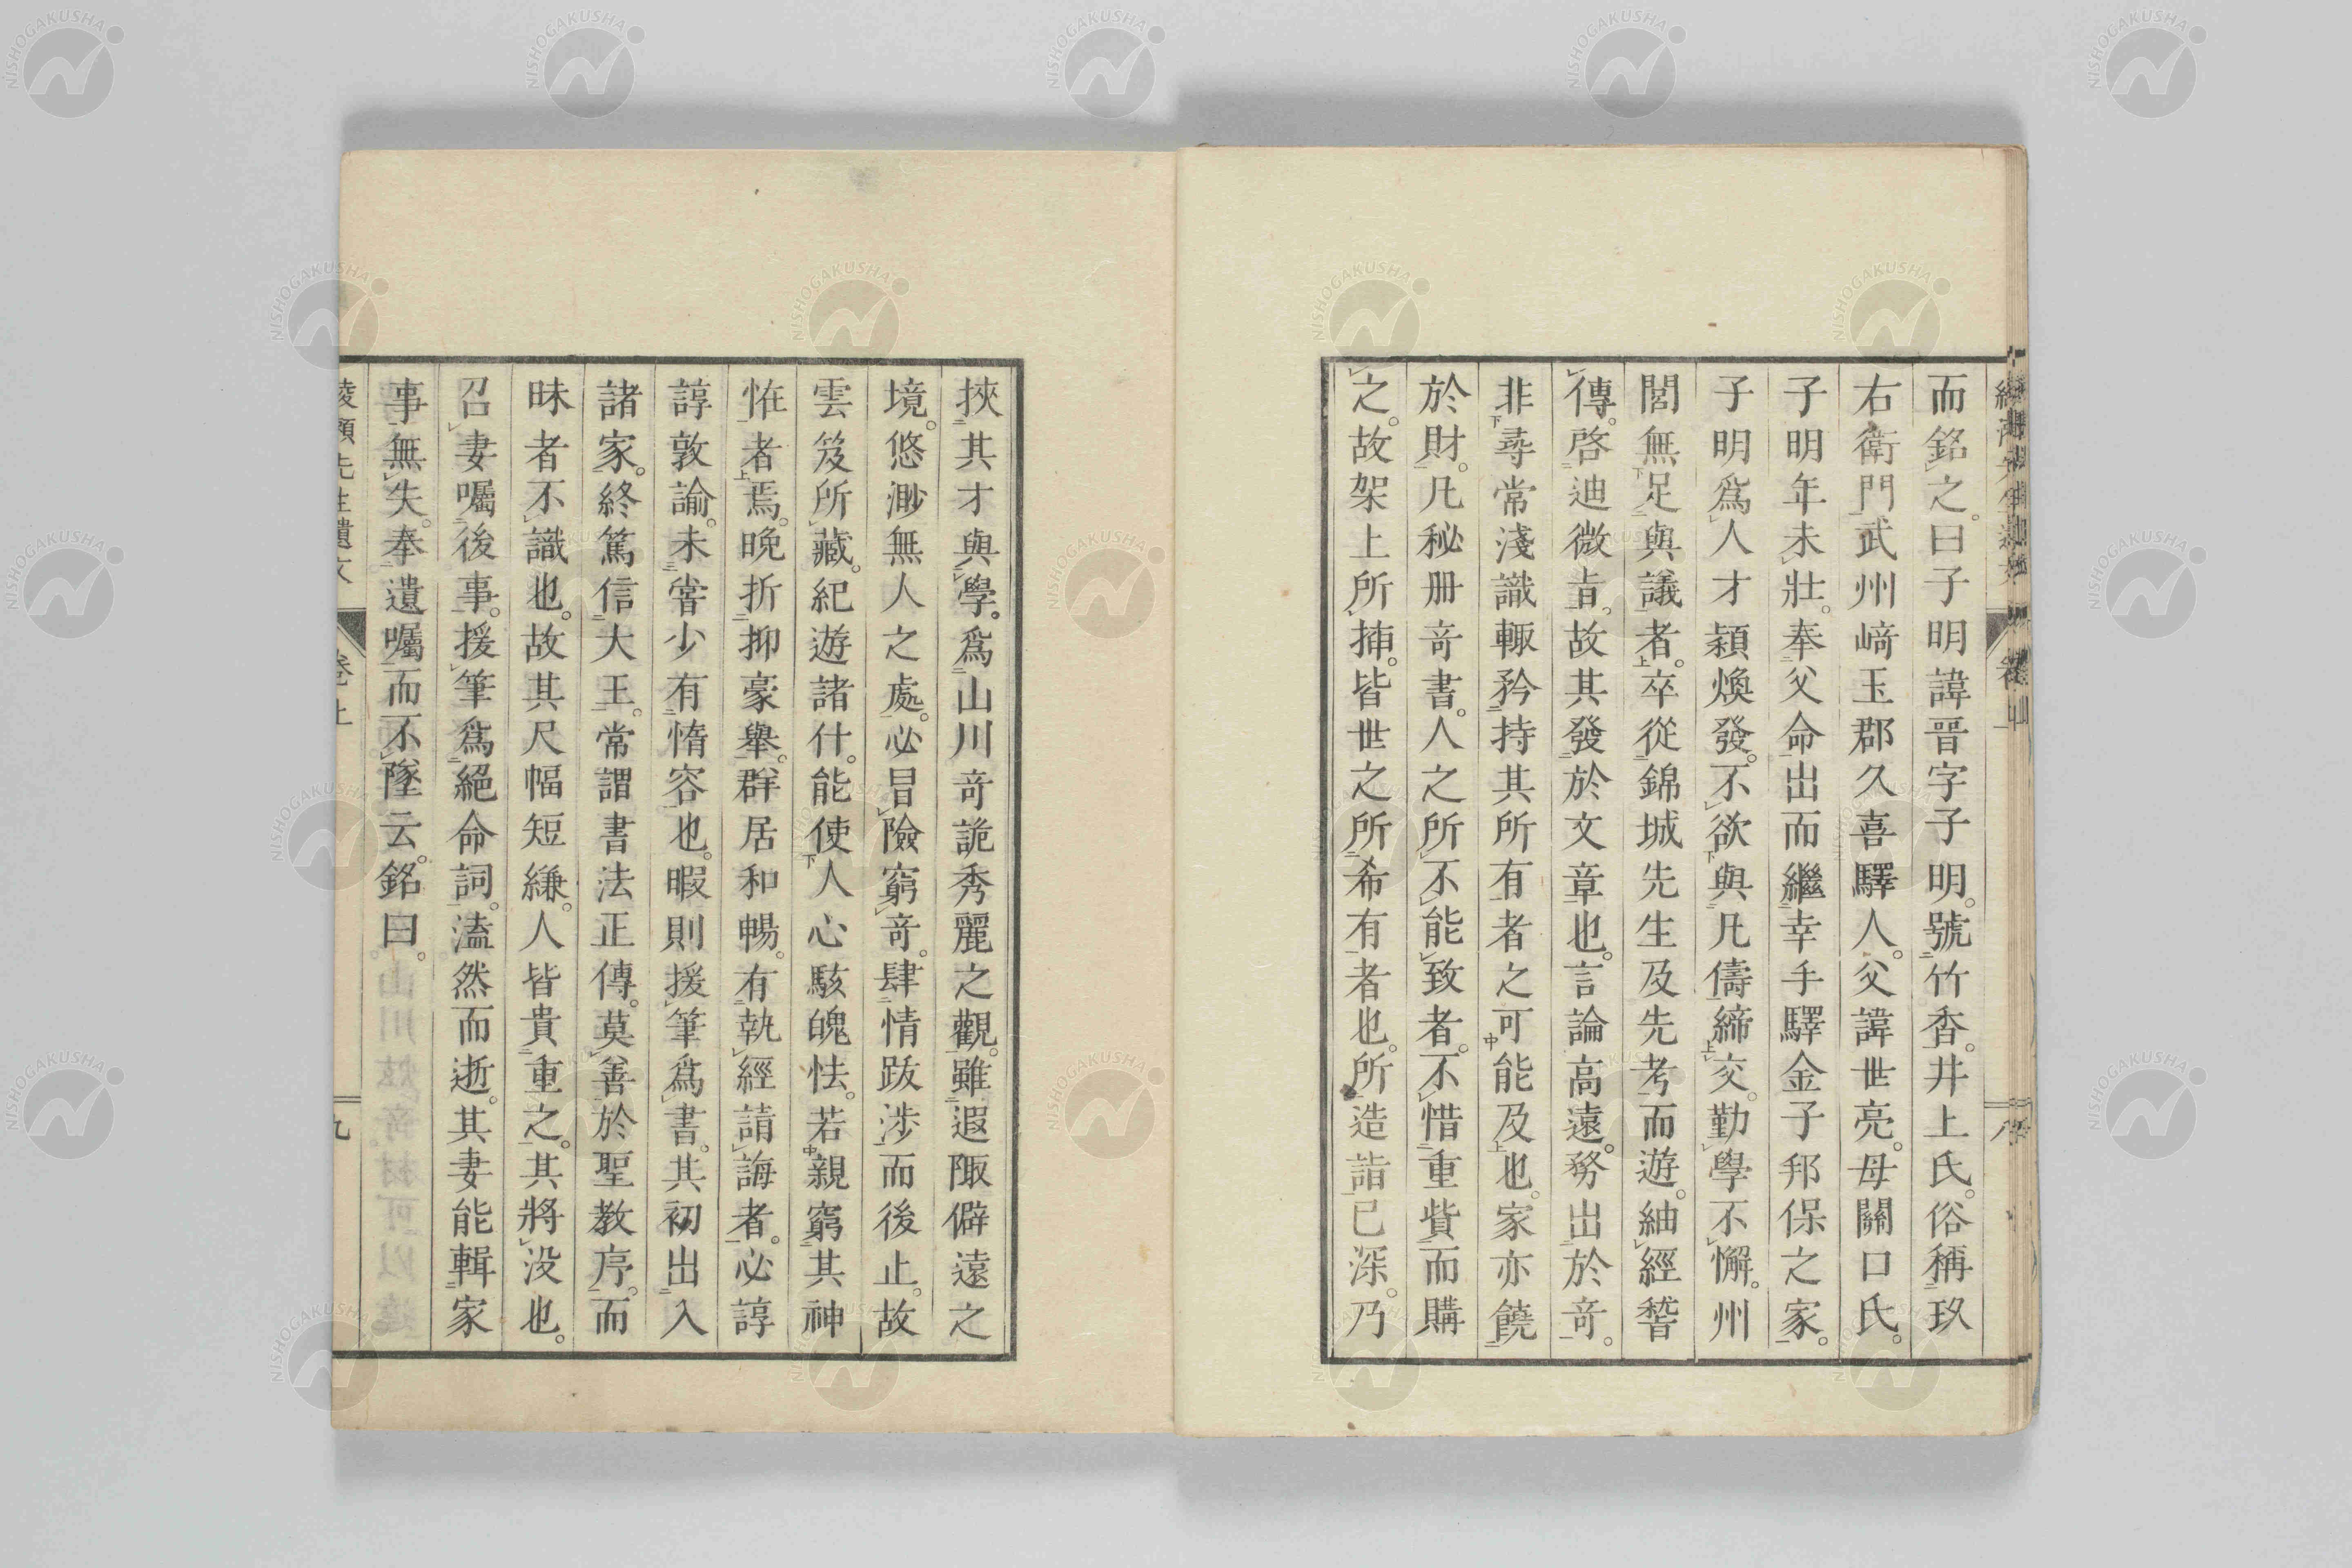 而銘之。曰子明諱晋字子明。號竹香。井上氏。俗稱玖
右衛門武州﨑玉郡久喜驛人。父諱世亮。母關口氏。
子明年未壯。奉父命出而繼幸手驛金子邦保之家。
子明爲人才穎煥發。不欲與凡儔締交。勤學不懈。州
閭無足與議者。卒從錦城先生及先考而遊。紬經誓
傳。啓迪微旨。故其發於文章也。言論高遠。務出於奇。
非尋常淺識輙矜持其所有者之可能及也。家亦饒
於財。凡秘册奇書。人之所不能致者。不惜重貲而購
之。故架上所揷。皆世之所希有者也。所造詣已深。乃
挾其才與學。爲山川奇詭秀麗之觀。雖遐陬僻遠之
境。悠渺無人之處。必冒險窮奇。肆情跋涉而後止。故
雲笈所藏。紀遊諸什。能使人心駭魄怯。若親窮其神
恠者焉。晩折抑豪擧。群居和暢。有執經請誨者。必諄
諄敦諭。未甞少有惰容也。暇則援筆爲書。其初出入
諸家。終篤信大王。常謂書法正傳。莫善於聖教序。而
昧者不識也。故其尺幅短縑。人皆貴重之。其將没也。
召妻囑後事。援筆爲絕命詞。溘然而逝。其妻能輯家
事無失。奉遺囑而不墜云。銘曰。
先生遺文 卷上 九